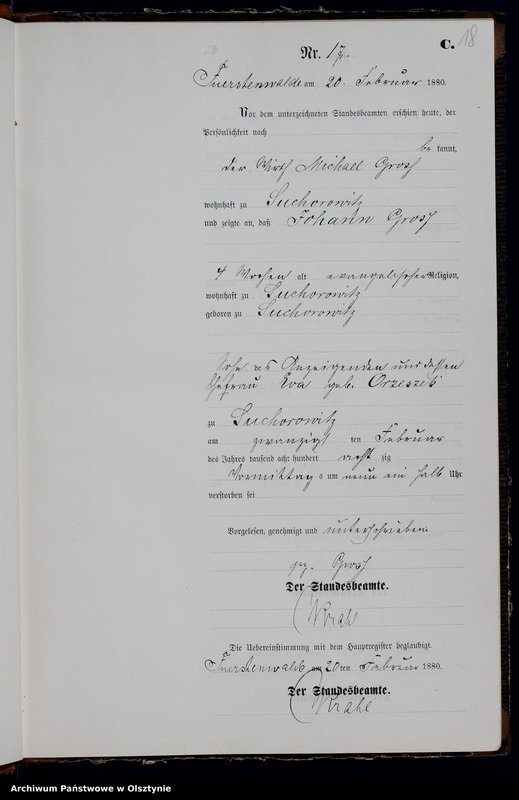 C. 18
Nr. 17.
Fuerstenwalde am 20. Februar 1880.
Vor dem unterzeichneten Standesbeamten erschien heute, der
Persönlichkeit nach
be kannt,
der Wirth Michael Grosz
wohnhaft zu Suchorowitz
und zeigte an, daß Johann Grosz
4 Wochen alt evangelischer Religion,
wohnhaft zu Suchorowitz
geboren zu Suchorowitz
Sohn des Anzeigenden und dessen
Ehefrau Eva geb. Orzeszek
zu Suchorowitz
am zwanzigsten Februar
des Jahres tausend acht hundert acht zig
Vormittags um neun ein halb Uhr
verstorben sei
Vorgelesen, genehmigt und unterschrieben
gez. Grosz
Der Standesbeamte.
Krahl
Die Uebereinstimmung mit dem Hauptregister beglaubigt.
Fuerstenwalde am 20ten Februar 1880.
Der Standesbeamte.
Krahl
Archiwum Państwowe w Olsztynie